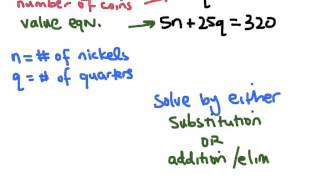 number of coins →
value eqn. → 5n+25q=320
n=# of nickels
q=# of quarters
Solve by either
Substitution
OR
addition/elim